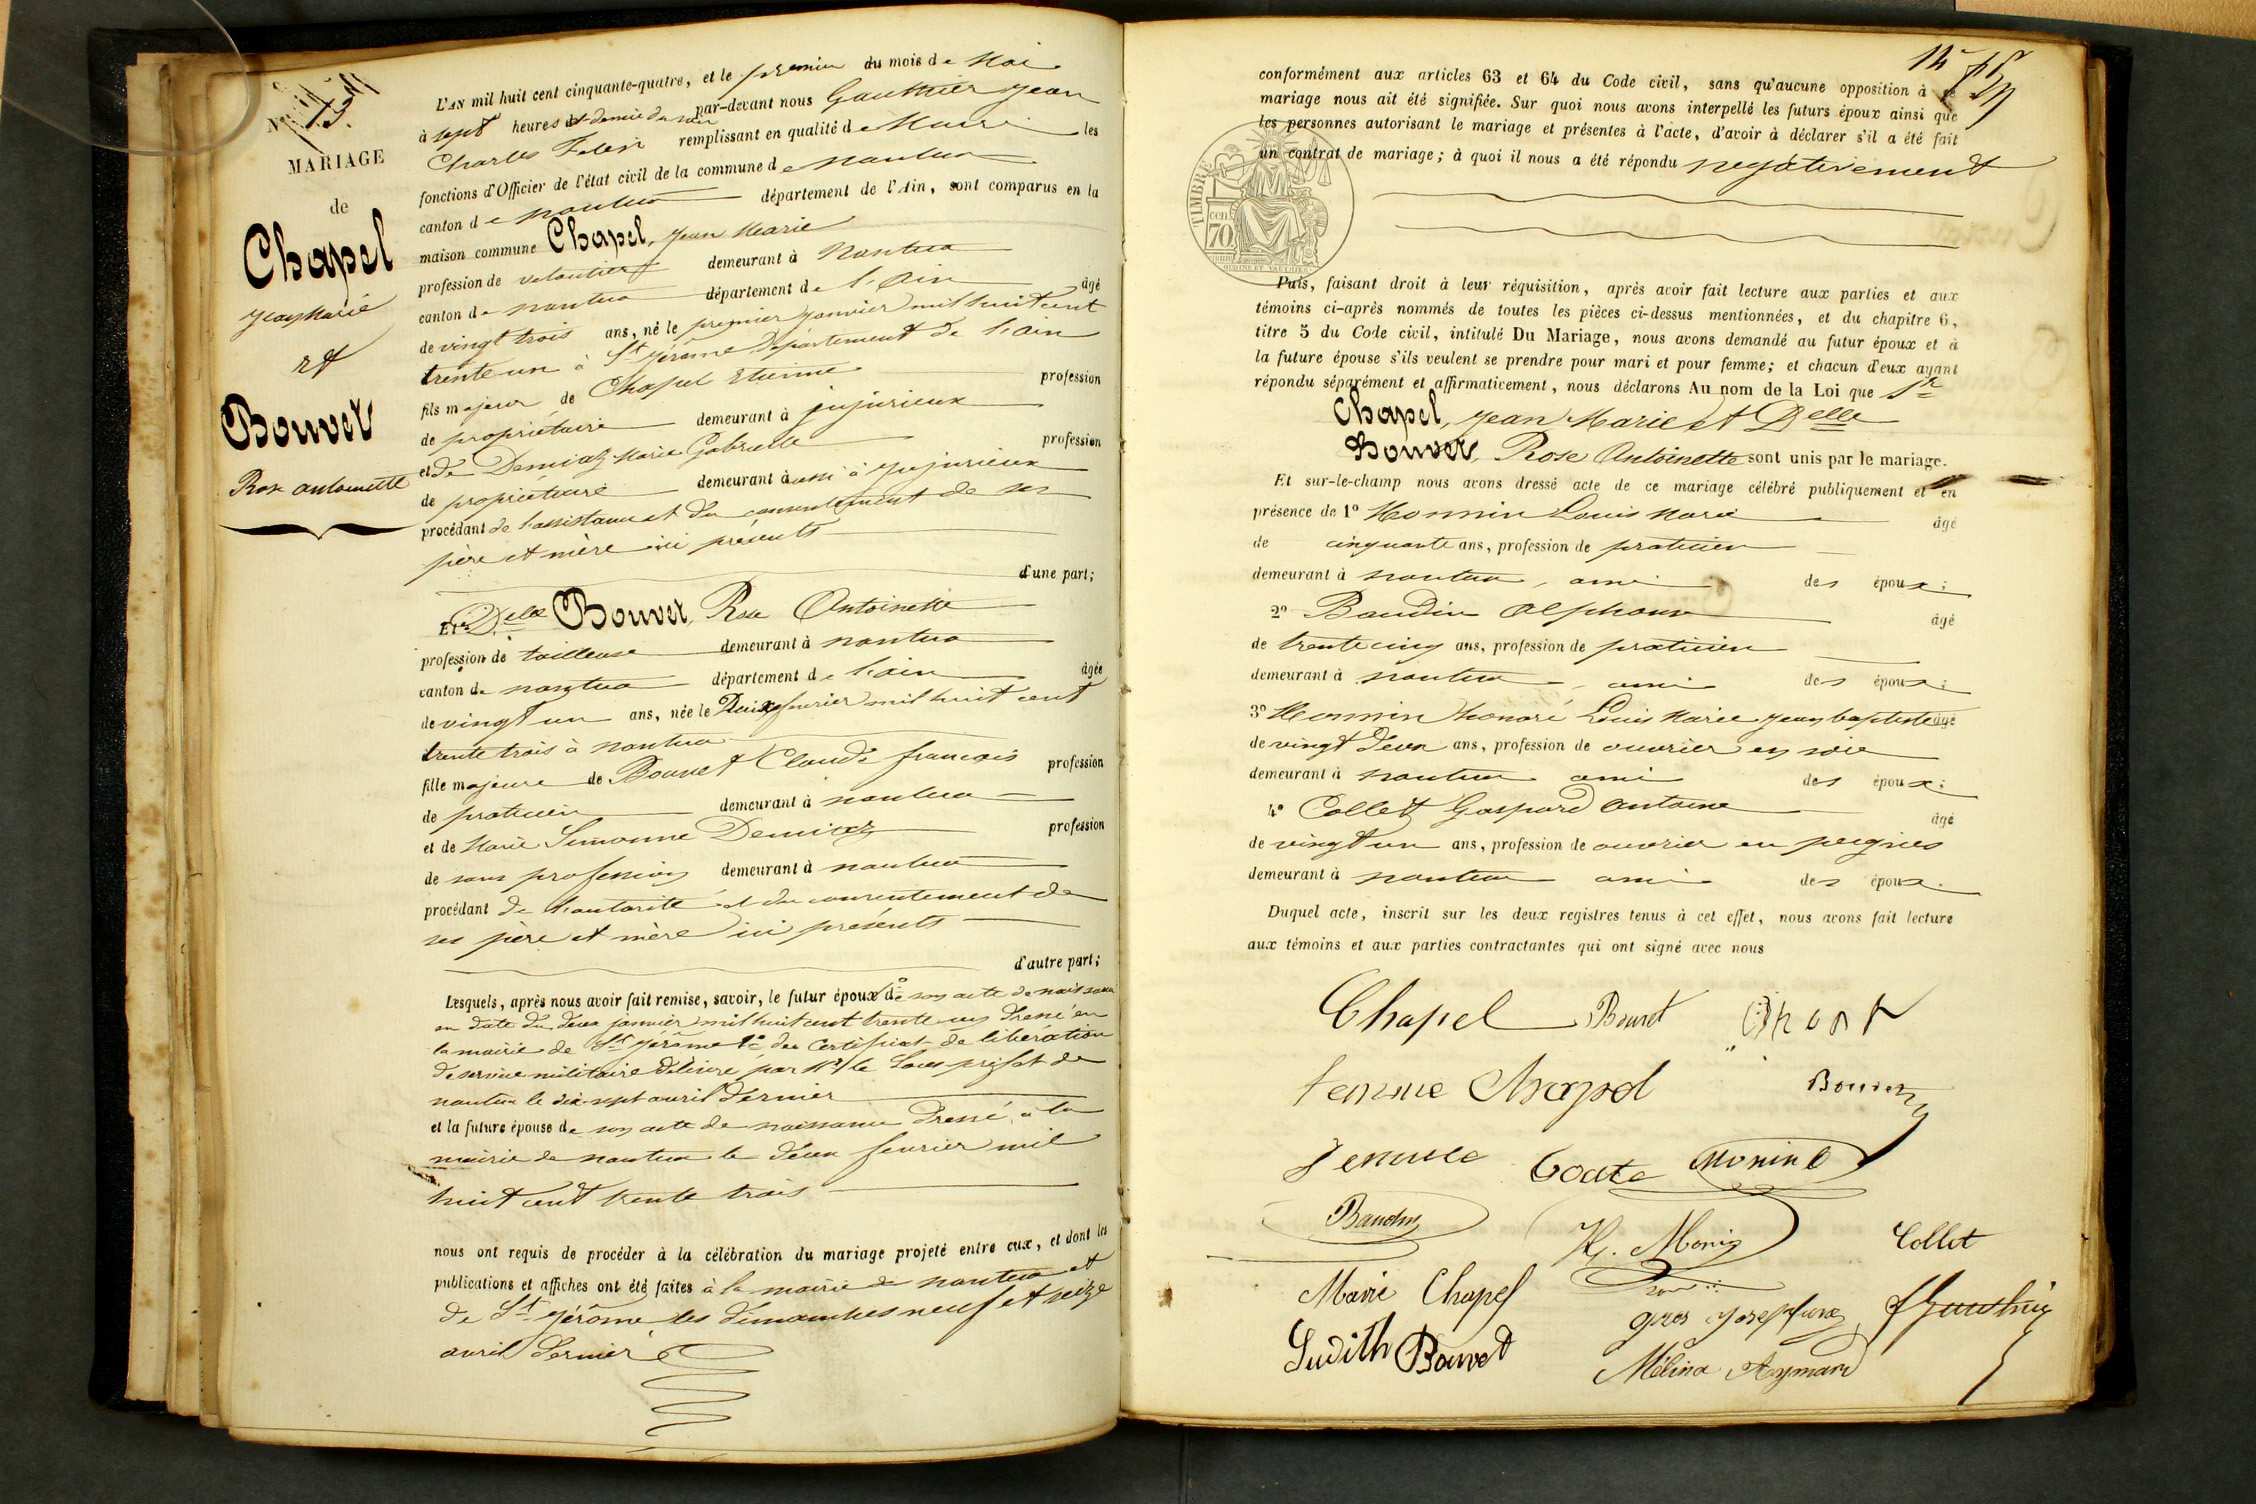 MARIAGE
de
Chapel
Jean Marie
et
Bouvet
Rose antoinette
L'AN mil huit cent cinquante-quatre, et le premier du mois de Mai
à sept heures et demie du soir par-devant nous Gauthier Jean
Charles Felix remplissant en qualité de Maire les
fonctions d'Officier de l'état civil de la commune de nantua
canton de nantua département de l'Ain, sont comparus en la
maison commune Chapel, Jean Marie
profession de veloutier demeurant à Nantua
canton de nantua département de l'Ain âgé
de vingt trois ans, né le premier janvier mil huit cent
trente un à St jérôme Département de l'ain
fils majeur de Chapel Etienne profession
de propriétaire demeurant à jujurieux
et de Demiaz Marie Gabrielle profession
de propriétaire demeurant aussi à jujurieux
procédant de l'assistance et du consentement de ses
père et mère ici présents
d'une part;
Et Delle Bouvet, Rose Antoinette
profession de tailleuse demeurant à nantua
canton de nantua département de l'ain âgée
de vingt un ans, née le Deux fevrier mil huit cent
trente trois à nantua
fille majeure de Bouvet Claude françois profession
de praticien demeurant à nantua
et de Marie Simonne Demiaz profession
de sans profession demeurant à nantua
procédant de l'autorité et du consentement de
ses père et mère ici présents
d'autre part;
Lesquels, après nous avoir fait remise, savoir, le futur époux de son acte de naissance
en date du deux janvier mil huit cent trente un dressé en
la mairie de St jérôme 2º du Certificat de libération
de service militaire délivré par Mr le Sous-préfet de
nantua le dix-sept avril dernier
et la future épouse de son acte de naissance dressé à la
mairie de nantua le deux fevrier mil
huit cent trente trois
nous ont requis de procéder à la célébration du mariage projeté entre eux, et dont les
publications et affiches ont été faites à la mairie de nantua et
de St jérôme les dimanches neuf et seize
avril dernier
14
conformément aux articles 63 et 64 du Code civil, sans qu'aucune opposition à ce
mariage nous ait été signifiée. Sur quoi nous avons interpellé les futurs époux ainsi que
les personnes autorisant le mariage et présentes à l'acte, d'avoir à déclarer s'il a été fait
un contrat de mariage; à quoi il nous a été répondu negativement
TIMBRE
70
Puis, faisant droit à leur réquisition, après avoir fait lecture aux parties et aux
témoins ci-après nommés de toutes les pièces ci-dessus mentionnées, et du chapitre 6,
titre 5 du Code civil, intitulé Du Mariage, nous avons demandé au futur époux et à
la future épouse s'ils veulent se prendre pour mari et pour femme; et chacun d'eux ayant
répondu séparément et affirmativement, nous déclarons Au nom de la Loi que Sr
Chapel, Jean Marie et Delle
Bouvet, Rose Antoinette sont unis par le mariage.
Et sur-le-champ nous avons dressé acte de ce mariage célébré publiquement et en
présence de 1º Monnin Louis Marie âgé
de cinquante ans, profession de praticien
demeurant à nantua, ami des époux;
2º Baudin Alphonse âgé
de trente cinq ans, profession de praticien
demeurant à nantua ami des époux;
3º Monnin honoré Louis Marie jean baptiste âgé
de vingt deux ans, profession de ouvrier en soie
demeurant à nantua ami des époux;
4º Collet Gaspard Antoine âgé
de vingt un ans, profession de ouvrier en peignes
demeurant à nantua ami des époux.
Duquel acte, inscrit sur les deux registres tenus à cet effet, nous avons fait lecture
aux témoins et aux parties contractantes qui ont signé avec nous
Chapel Bouvet
femme Chapel Bouvet
femme Monin
Baudin H. Monin Collet
Marie Chapel
Judith Bouvet Mélina Aymard